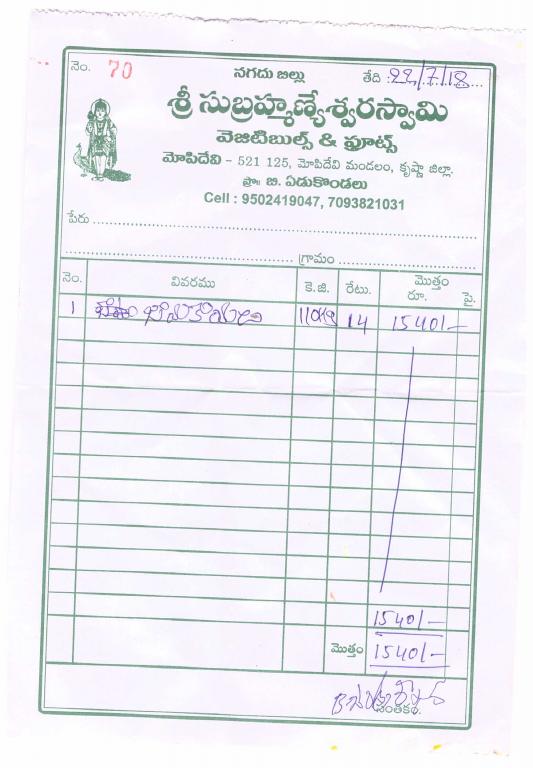 నెం. 70 నగదు బిల్లు తేది :22/7/18
శ్రీ సుబ్రహ్మణ్యేశ్వరస్వామి
వెజిటిబుల్స్ & ఫ్రూట్స్
మోపిదేవి – 521 125, మోపిదేవి మండలం, కృష్ణా జిల్లా.
ప్రొః బి. ఏడుకొండలు
Cell : 9502419047, 7093821031
పేరు
గ్రామం
నెం. వివరము కె.జి. రేటు. మొత్తం రూ. పై.
1 110kg 14 1540/-
1540/-
మొత్తం 1540/-
సంతకం.